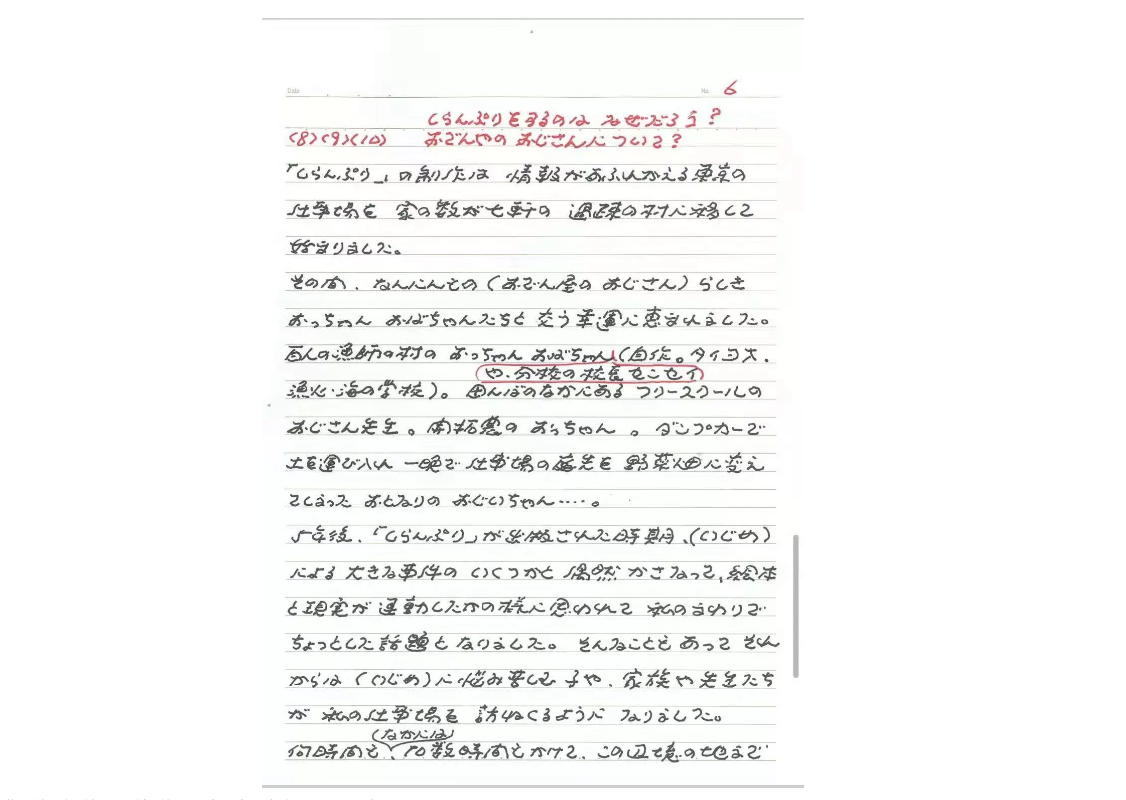 Date
No. 6
しらんぷりをするのは なぜだろう?
(8)(9)(10) おでんやの おじさんについて?
「しらんぷり」の創作は 情報があふれかえる東京の
仕事場を 家の数が七軒の 過疎の村に移して
始まりました。
その間、なんにんもの(おでん屋の おじさん)らしき
おっちゃん おばちゃんたちと 交う幸運に恵まれました。
百人の漁師の村の おっちゃん おばちゃん(自作。タイコ大、
や、分校の校長センセイ
漁火・海の学校)。田んぼのなかにある フリースクールの
おじさん先生。開拓農の おっちゃん 。ダンプカーで
土を運び入れ 一晩で 仕事場の庭先を 野菜畑に変え
てしまった おとなりの おじいちゃん……。
5年後、「しらんぷり」が出版された時期、(いじめ)
による 大きな事件の いくつかと 偶然 かさなって、絵本
と現実が 連動したかの様に思われて 私のまわりで
ちょっとした話題と なりました。そんなことも あって それ
からは (いじめ)に悩み苦しむ 子や、家族や 先生たち
が 私の仕事場を 訪ねくるように なりました。
(なかには)
何時間も、10数時間もかけて、この辺境の地まで